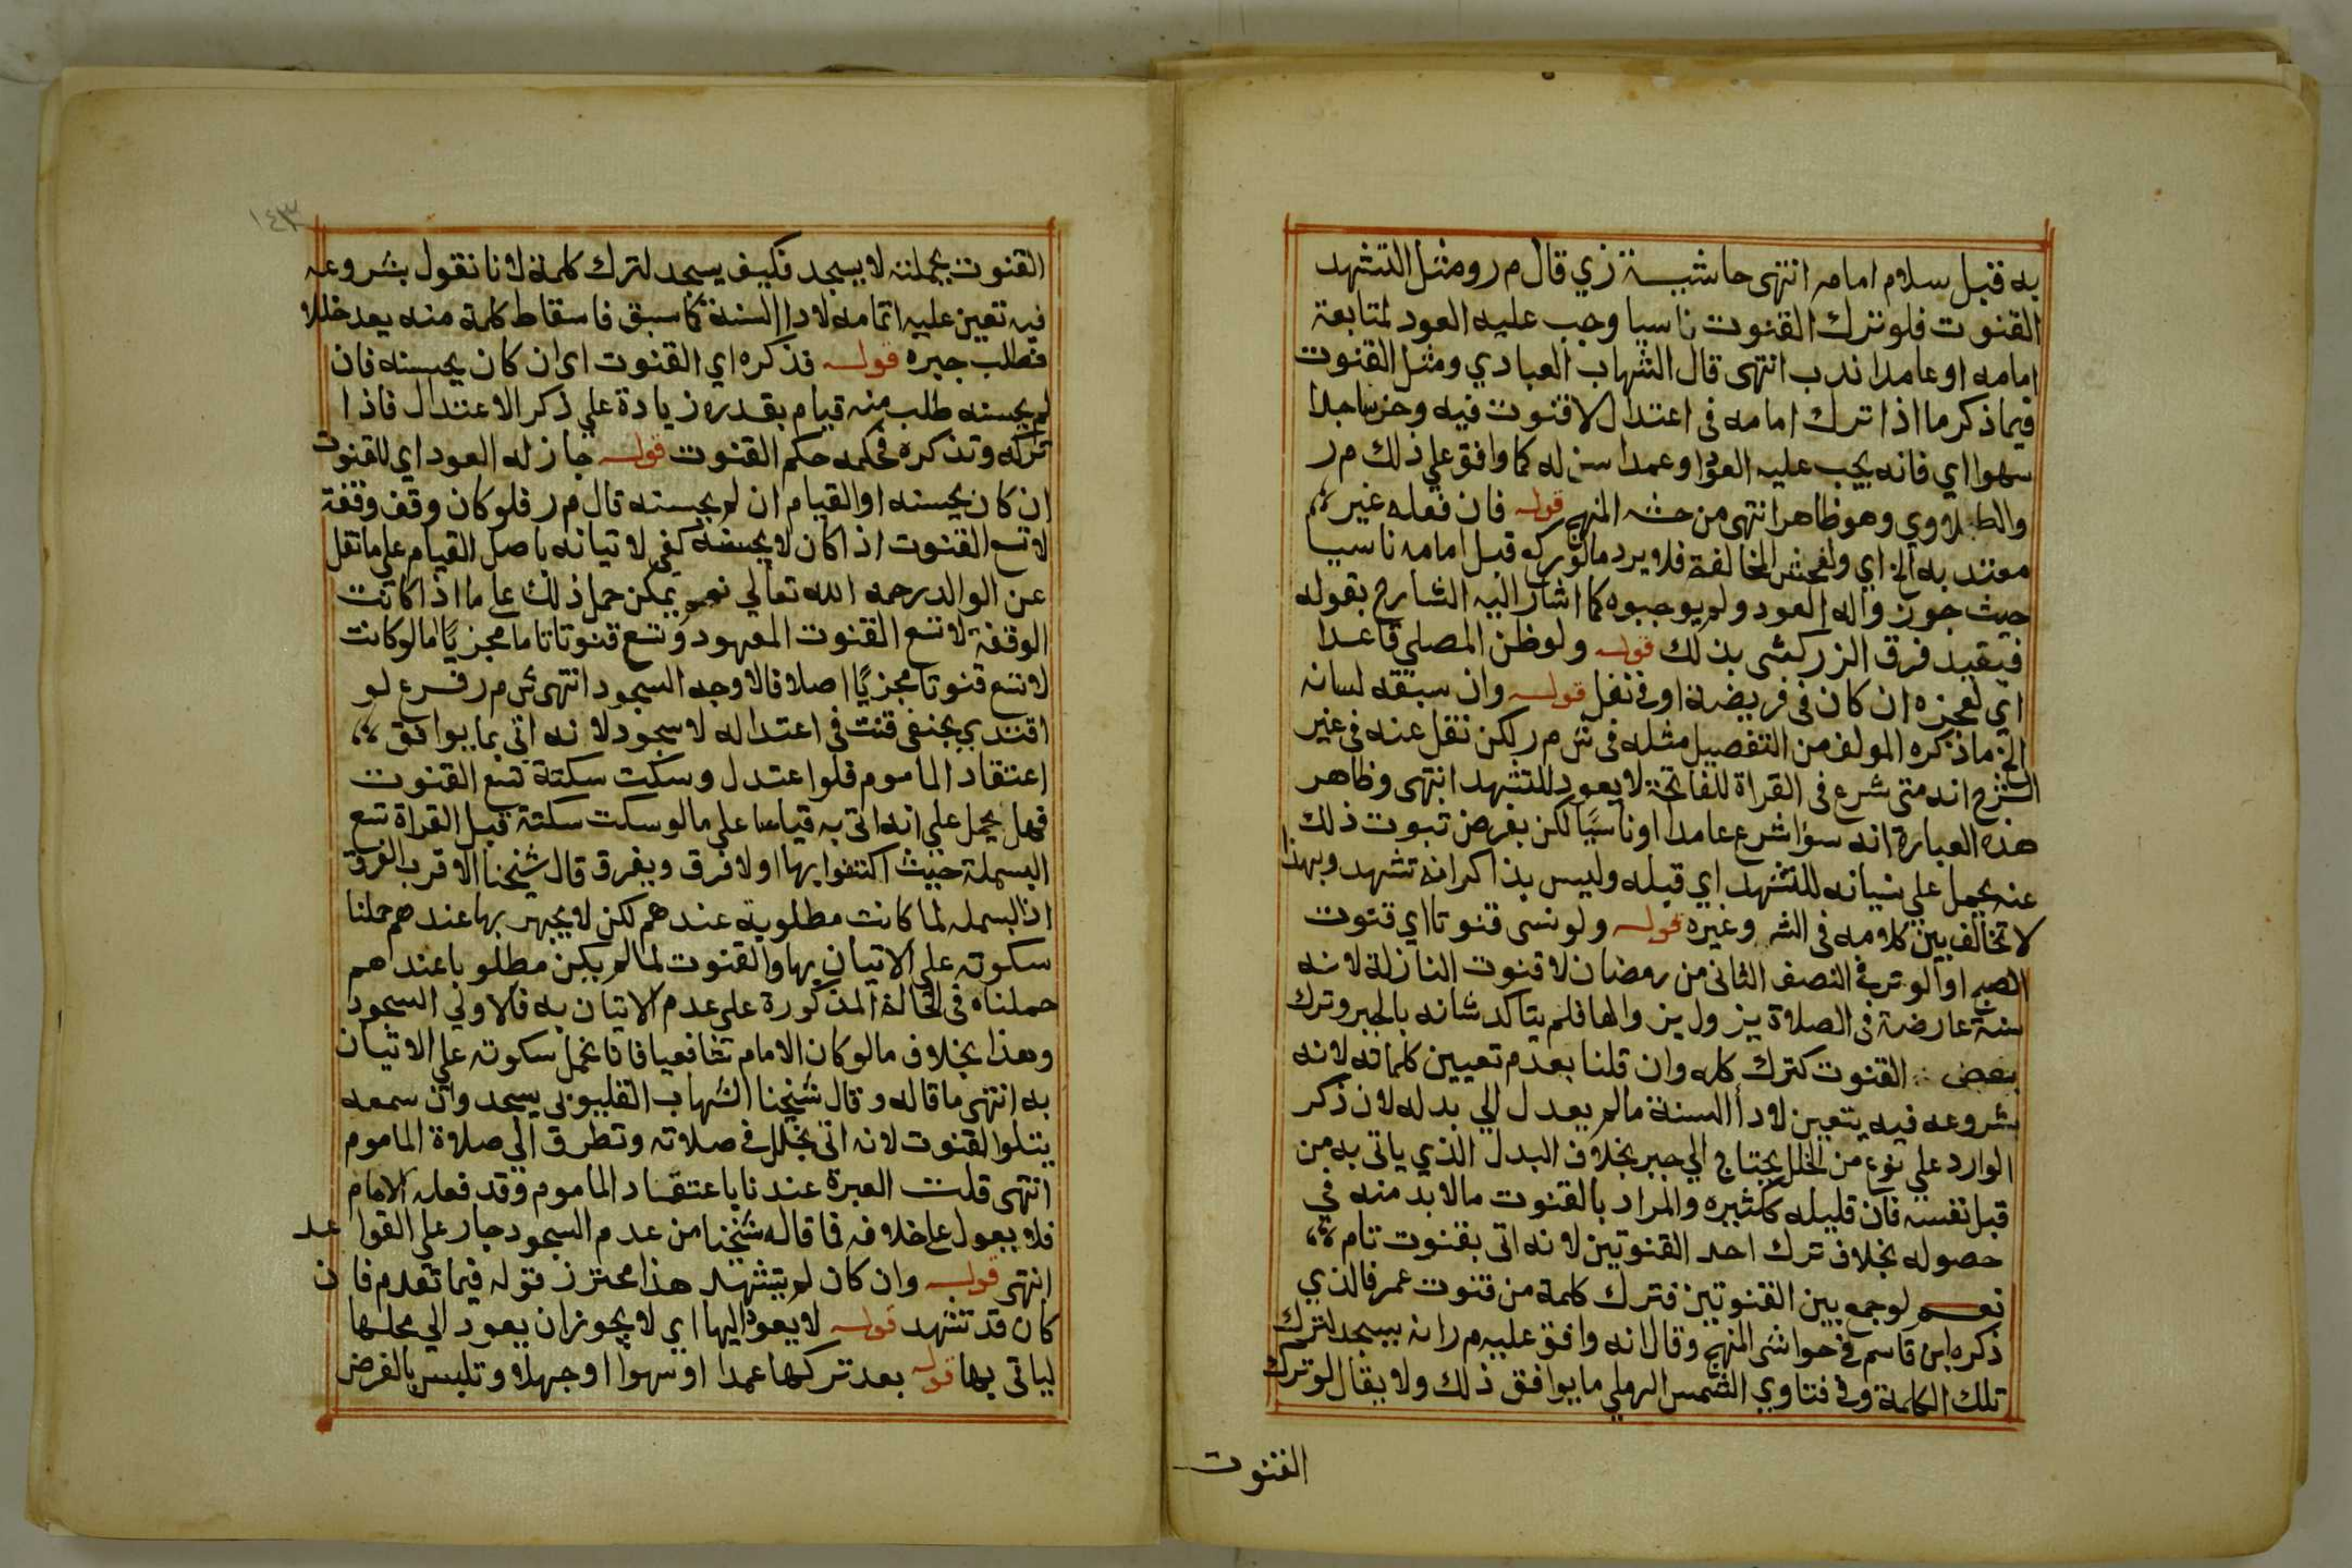 به قبل سلام امامه انتهى حاشية زي قال م ر ومثل التشهد
القنوت فلو ترك القنوت ناسيا وجب عليه العود لمتابعة
امامه او عامدا ندب انتهى قال الشهاب العبادي ومثل القنوت
فيما ذكر ما اذا ترك امامه في اعتدال لا قنوت فيه وخر ساجدا
سهوا اي فانه يجب عليه العود او عمدا سن له كما وافق علي ذلك م ر
والطبلاوي وهو ظاهر انتهى من حشه المنهج قوله فان فعله غير
معتد به الخ اي ولفحش المخالفة فلا يرد مالو ركع قبل امامه ناسيا
حيث جوزواله العود ولم يوجبوه كما اشار اليه الشارح بقوله
فيقيد فرق الزركشي بذلك قوله ولو ظن المصلي قاعدا
اي لعجزه ان كان في فريضة او في نفل قوله وان سبقه لسانه
الخ ما ذكره المولف من التفصيل مثله في ش م ر لكن نقل عنه في غير
الشرح انه متى شرع في القراة للفاتحة لا يعود للتشهد انتهى وظاهر
هذه العبارة انه سؤا شرع عامدا او ناسيًا لكن بفرض ثبوت ذلك
عنه يحمل علي نسيانه للتشهد اي قبله وليس بذاكر انه تشهد وبهذا
لا تخالف بين كلامه في الشه وغيره قوله ولو نسى قنوتا اي قنوت
الصبح او الوتر في النصف الثاني من رمضان لا قنوت النازلة لانه
سنة عارضة في الصلاة يزول يزوالها فلم يتاكد شانه بالجبر وترك
بعض القنوت كترك كله وان قلنا بعدم تعيين كلماته لانه
بشروعه فيه يتعين لادأ السنة مالم يعدل الي بدله لان ذكر
الوارد علي نوع من الخلل يحتاج الي جبر بخلاف البدل الذي ياتي به من
قبل نفسه فان قليله ككثيره والمراد بالقنوت مالا بد منه في
حصوله بخلاف ترك احد القنوتين لانه اتى بقنوت تام
نعم لو جمع بين القنوتين فترك كلمة من قنوت عمر فالذي
ذكره ابن قاسم في حواشي المنهج وقال انه وافق عليه م ر انه يسجد لترك
تلك الكلمة وفي فتاوي الشمس الرملي ما يوافق ذلك ولا يقال لو ترك
القنوت
١٤٣
القنوت بجملته لا يسجد فكيف يسجد لترك كلمة لانا نقول بشروعه
فيه تعين عليه اتمامه لادا السنة كما سبق فاسقاط كلمة منه يعد خللا
فطلب جبره قوله فذكره اي القنوت اي ان كان يحسنه فان
لم يحسنه طلب منه قيام بقدره زيادة علي ذكر الاعتدال فاذا
تركه وتذكره فحكمه حكم القنوت قوله جاز له العود اي للقنوت
ان كان يحسنه او القيام ان لم يحسنه قال م ر فلو كان وقف وقفة
لا تسع القنوت اذا كان لا يحسنه كفى لاتيانه باصل القيام علي ما نقل
عن الوالد رحمه الله تعالي نعم يمكن حمل ذلك علي ما اذا كانت
الوقفة لا تسع القنوت المعهود وتسع قنوتا تاما مجزيًا اما لو كانت
لا تسع قنوتا مجزيًا اصلا فالاوجه السجود انتهى ش م ر فرع لو
اقتدي بحنفي قنت في اعتداله لا سجود لانه اتي بما يوافق
اعتقاد الماموم فلو اعتدل وسكت سكتة تسع القنوت
فهل يحمل علي انه اتى به قياسا علي ما لو سكت سكتة قبل القراة تسع
البسملة حيث اكتفوا بها اولا فرق ويفرق قال شيخنا الاقرب الفرق
اذ البسمله لما كانت مطلوبة عندهم لكن لا يجهر بها عندهم حملنا
سكوته علي الاتيان بها والقنوت لما لم يكن مطلوبا عندهم
حملناه في الحالة المذكورة علي عدم الاتيان به فالاولي السجود
وهذا بخلاف ما لو كان الامام شافعيا فانا نحمل سكوته علي الاتيان
به انتهى ما قاله وقال شيخنا الشهاب القليوبي يسجد وان سمعه
يتلو القنوت لانه اتى بخلل في صلاته وتطرق الي صلاة الماموم
انتهى قلت العبرة عندنا باعتقاد الماموم وقد فعله الامام
فلا يعول علي خلافه فما قاله شيخنا من عدم السجود جار علي القواعد
انتهى قوله وان كان لم يتشهد هذا محترز قوله فيما تقدم فان
كان قد تشهد قوله لا يعود اليها اي لا يجوز ان يعود الي محلها
لياتي بها قوله بعد تركها عمدا او سهوا او جهلا وتلبس بالفرض